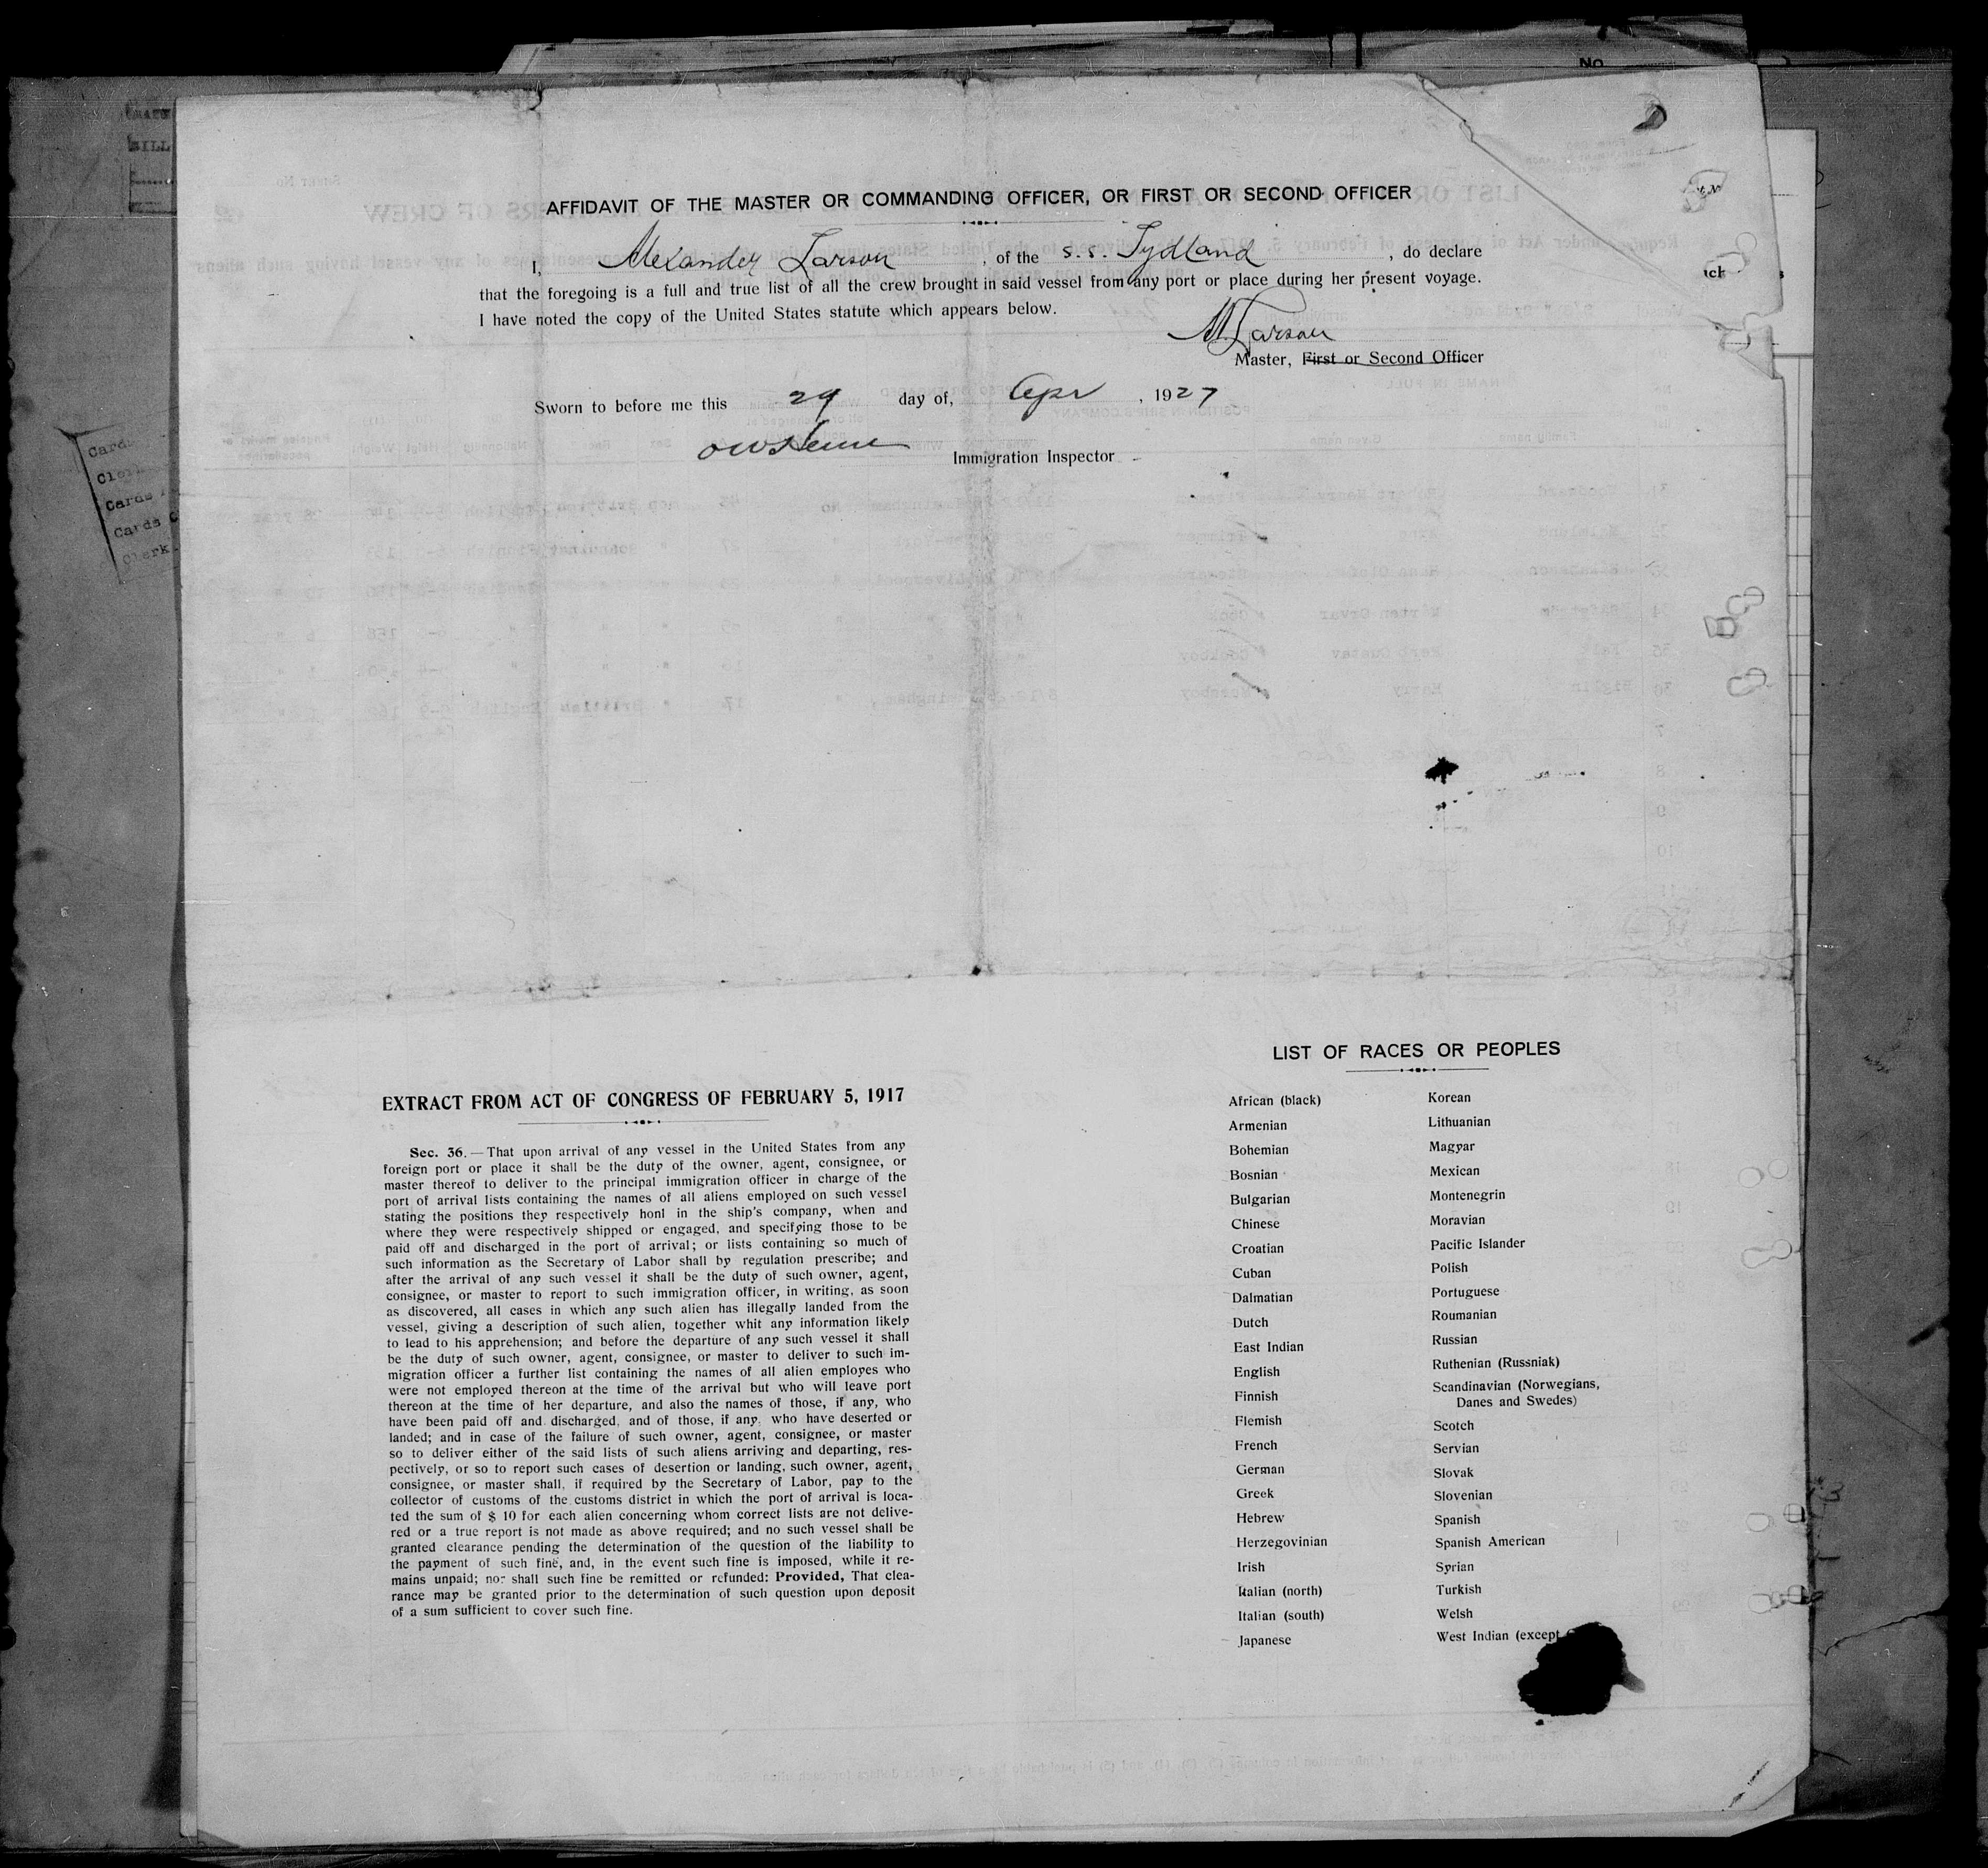 AFFIDAVIT OF THE MASTER OR COMMANDING OFFICER, OR FIRST OR SECOND OFFICER
I, Alexander Larson, of the s.s. Tydland, do declare
that the foregoing is a full and true list of all the crew brought in said vessel from any port or place during her present voyage.
I have noted the copy of the United States statute which appears below.
Larson
Master, First or Second Officer
Sworn to before me this 29 day of, Apr, 1927
Immigration Inspector
EXTRACT FROM ACT OF CONGRESS OF FEBRUARY 5, 1917
Sec. 36.—That upon arrival of any vessel in the United States from any
foreign port or place it shall be the duty of the owner, agent, consignee, or
master thereof to deliver to the principal immigration officer in charge of the
port of arrival lists containing the names of all aliens employed on such vessel
stating the positions they respectively honl in the ship's company, when and
where they were respectively shipped or engaged, and specifying those to be
paid off and discharged in the port of arrival; or lists containing so much of
such information as the Secretary of Labor shall by regulation prescribe; and
after the arrival of any such vessel it shall be the duty of such owner, agent,
consignee, or master to report to such immigration officer, in writing, as soon
as discovered, all cases in which any such alien has illegally landed from the
vessel, giving a description of such alien, together whit any information likely
to lead to his apprehension; and before the departure of any such vessel it shall
be the duty of such owner, agent, consignee, or master to deliver to such im-
migration officer a further list containing the names of all alien employes who
were not employed thereon at the time of the arrival but who will leave port
thereon at the time of her departure, and also the names of those, if any, who
have been paid off and discharged, and of those, if any, who have deserted or
landed; and in case of the failure of such owner, agent, consignee, or master
so to deliver either of the said lists of such aliens arriving and departing, res-
pectively, or so to report such cases of desertion or landing, such owner, agent,
consignee, or master shall, if required by the Secretary of Labor, pay to the
collector of customs of the customs district in which the port of arrival is loca-
ted the sum of $ 10 for each alien concerning whom correct lists are not delive-
red or a true report is not made as above required; and no such vessel shall be
granted clearance pending the determination of the question of the liability to
the payment of such fine, and, in the event such fine is imposed, while it re-
mains unpaid; nor shall such fine be remitted or refunded: Provided, That clea-
rance may be granted prior to the determination of such question upon deposit
of a sum sufficient to cover such fine.
LIST OF RACES OR PEOPLES
African (black)
Armenian
Bohemian
Bosnian
Bulgarian
Chinese
Croatian
Cuban
Dalmatian
Dutch
East Indian
English
Finnish
Flemish
French
German
Greek
Hebrew
Herzegovinian
Irish
Italian (north)
Italian (south)
Japanese
Korean
Lithuanian
Magyar
Mexican
Montenegrin
Moravian
Pacific Islander
Polish
Portuguese
Roumanian
Russian
Ruthenian (Russniak)
Scandinavian (Norwegians,
Danes and Swedes)
Scotch
Servian
Slovak
Slovenian
Spanish
Spanish American
Syrian
Turkish
Welsh
West Indian (except